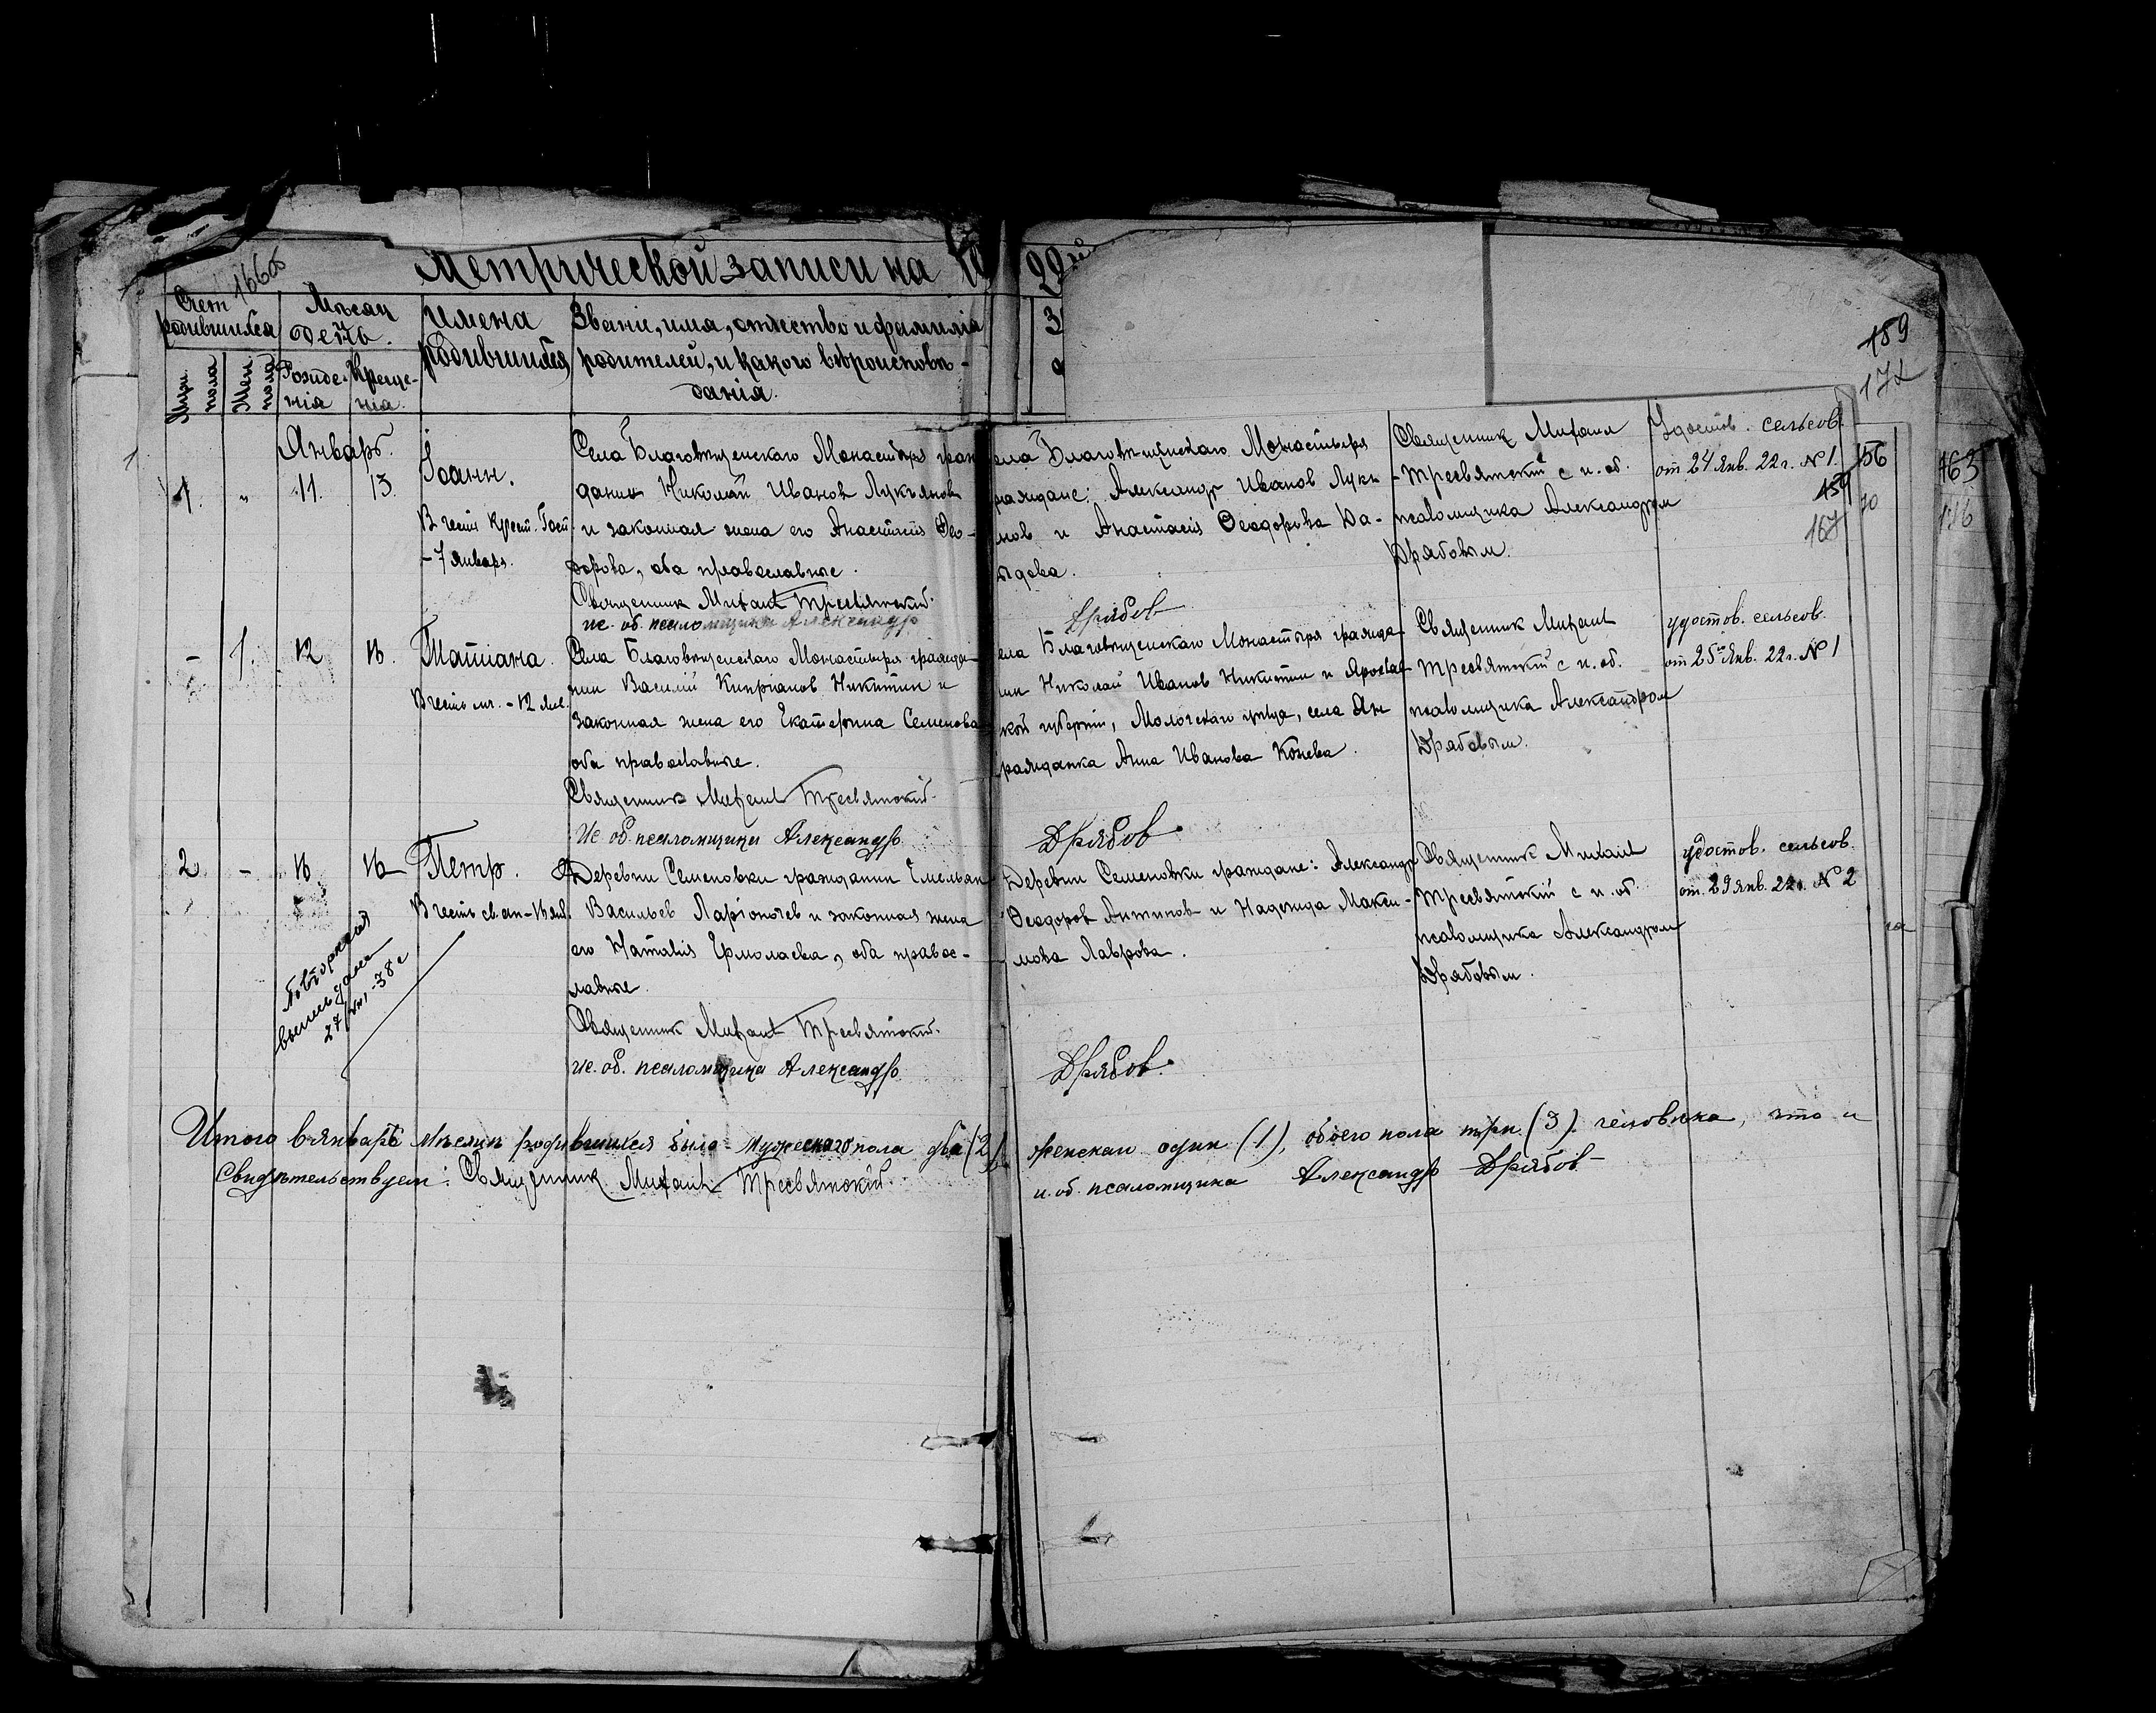 Метрической записи на 19
22й
1660
Счет
родившихся
Муж.
пола
Жен
пола
Мѣсяц
День.
Рожде-
нія
Креще-
нія.
Имена
родившихся
Званіе, имя, отчество и фамилія
родителей, и какого вѣроисповѣ-
данія.
189
172
Январь.
1. " 11. 13.
Іоанн.
В честь Крест. Госп.
- 7 января.
Села Благовѣщенскаго Монастыря граж
данин Николай Иванов Лукьянов
и законная жена его Анастасія Ѳео-
дорова, оба православные.
Священник Михаил Тресвятский.
ис. об. псаломщика Александр
ела Благовѣщенскаго Монастыря
раждане: Александр Иванов Лукь
нов и Анастасія Ѳеодорова Да-
ыдова.
Дрябов
Священник Михаил
Тресвятский с и. об.
псаломщика Александром
Дрябовым.
Удостов. сельсов.
от 24 Янв. 22г. № 1.
156
159
167
70
163
176
- 1. 12 16.
Татіана.
В честь мч. - 12 Янв.
Села Благовѣщенскаго Монастыря гражда-
нин Василій Кипріанов Никитин и
законная жена его Екатерина Семенова
оба православные.
Священник Михаил Тресвятский.
Ис об. псаломщика Александр
ела Благовѣщенскаго Монастыря гражда-
ин Николай Иванов Никитин и Ярослав-
кой губерніи, Мологскаго уѣзда, села Ян
ражданка Анна Иванова Конева.
Дрябов.
Священник Михаил
Тресвятский с и. об.
псаломщика Александром
Дрябовым.
удостов. сельсов.
от 25го Янв. 22г. № 1
2 - 16 16
Петр.
В честь св. ап - 16 янв.
Деревни Семеновки гражданин Емельян
Васильев Ларіонычев и законная жена
его Наталія Ермолаева, оба правос-
лавные.
Священник Михаил Тресвятский.
ис. об. псаломщика Александр
Деревни Семеновки граждане: Александр
Ѳеодоров Антипов и Надежда Макси-
мова Лаврова.
Дрябов.
Священник Михаил
Тресвятский с и. об
псаломщика Александром
Дрябовым.
удостов. сельсов.
от 29 янв. 22г. № 2
Повторная
выпись дана
Итого в январѣ мѣсяцѣ родившихся было - мужескаго пола два (2)
женскаго один (1), обоего пола три (3) человѣка, что и
свидѣтельствуем: Священник Михаил Тресвятский.
и. об. псаломщика Александр Дрябов